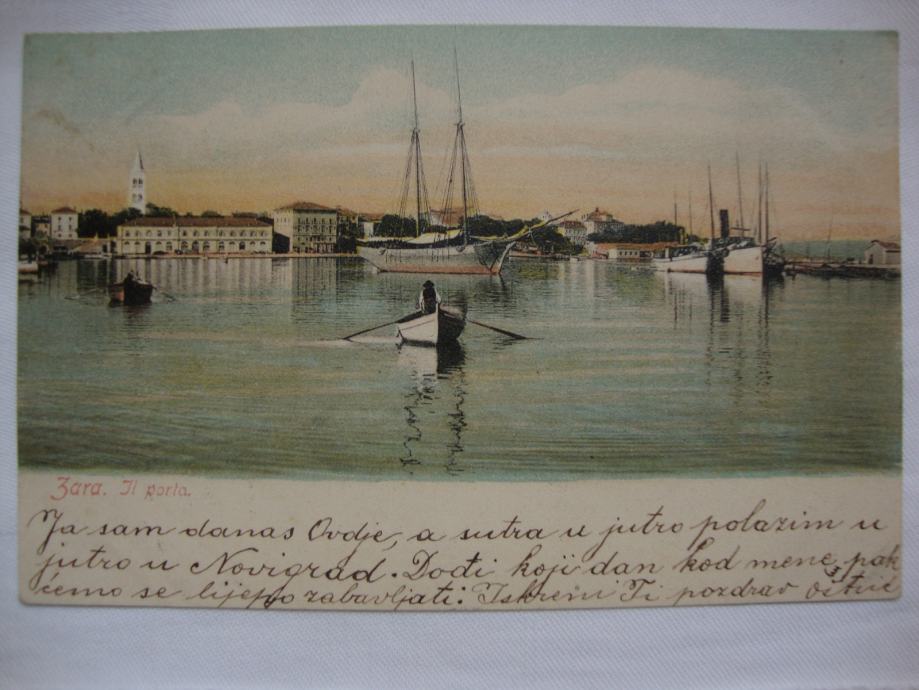 Zara. Il porta.
Ja sam danas Ovdje, a sutra u jutro polazim u
jutro u Novigrad. Dođi koji dan kod mene, pak
ćemo se lijepo zabavljati. Iskreni Ti pozdrav